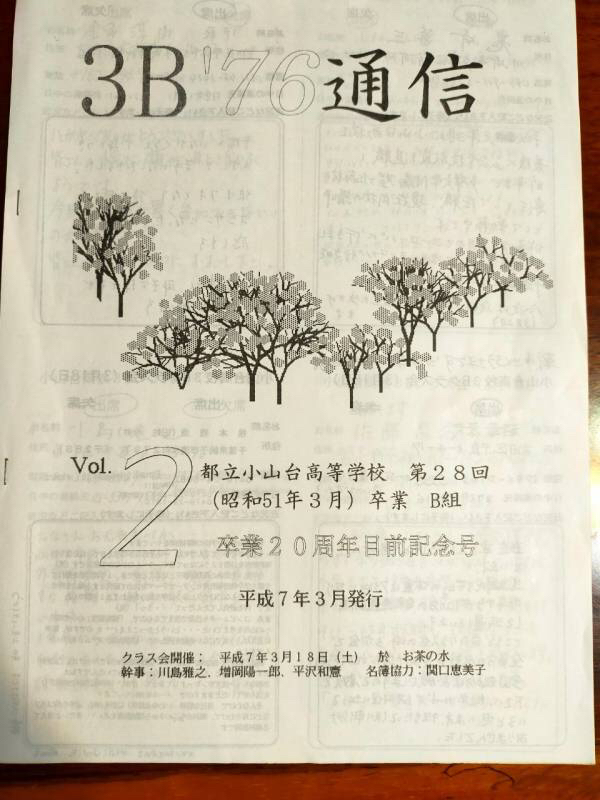 3B'76通信
Vol. 2
都立小山台高等学校 第28回
(昭和51年3月) 卒業 B組
卒業20周年目前記念号
平成7年3月発行
クラス会開催： 平成7年3月18日(土) 於 お茶の水
幹事：川島雅之、増岡陽一郎、平沢和憲 名簿協力：関口恵美子